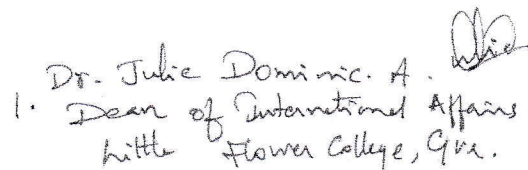 Dr. Julie Dominic. A.
1. Dean of International Affairs
Little Flower College, Gvr.